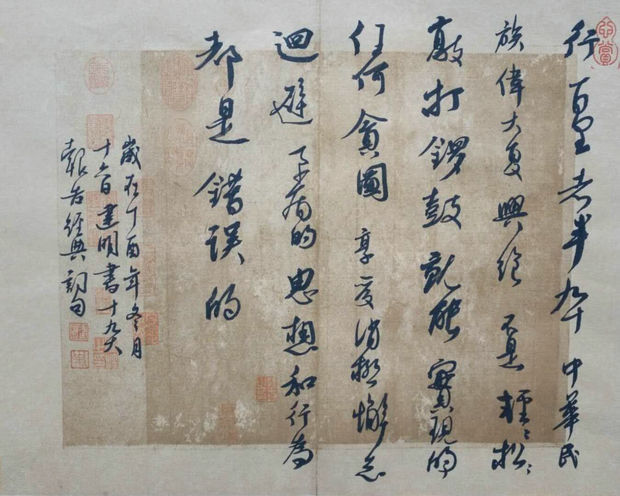 行百里者半九十中華民
族偉大复興絕不是輕〻松〻
敲打鑼鼓就能實現的
任何貪圖享受消極懈怠
迴避矛盾的思想和行為
都是錯误的
歲在丁酉年冬月
十六日建明書十九大
報告經典詞句